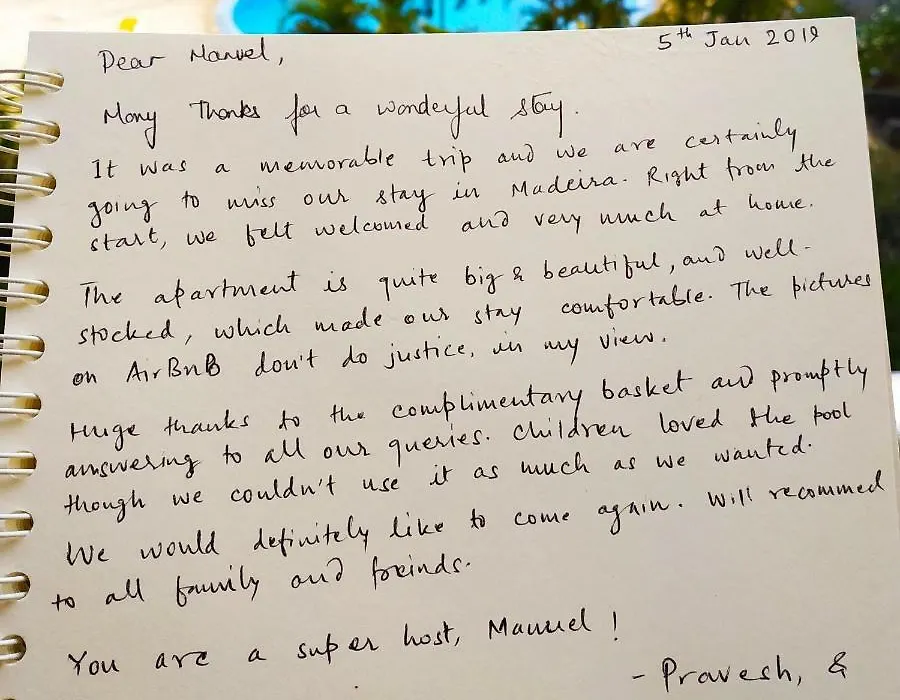 5th Jan 2019
Dear Manuel,
Many Thanks for a wonderful stay.
It was a memorable trip and we are certainly
going to miss our stay in Madeira. Right from the
start, we felt welcomed and very much at home.
The apartment is quite big & beautiful, and well-
stocked, which made our stay comfortable. The pictures
on AirBnB don't do justice, in my view.
Huge thanks to the complimentary basket and promptly
answering to all our queries. Children loved the pool
though we couldn't use it as much as we wanted.
We would definitely like to come again. Will recommed
to all family and freinds.
You are a super host, Manuel!
- Pravesh, &